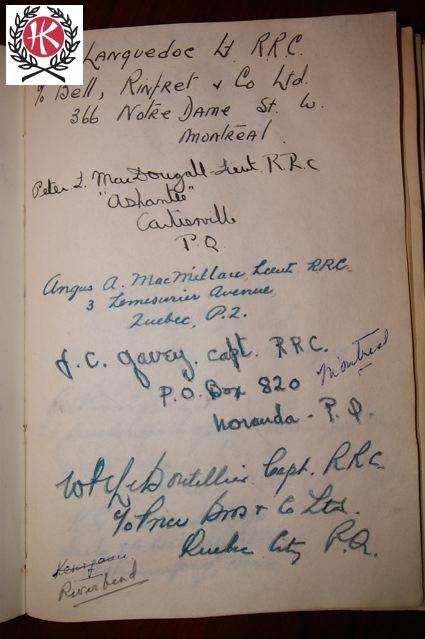 HK
Languedoc Lt. R.R.C.
% Bell, Rinfret & Co Ltd.
366 Notre Dame St. W.
Montréal.
Peter L. MacDougall - Lieut. R.R.C
"Ashantee"
Cartierville
P.Q.
Angus A. MacMillan, Lieut RRC.
3 Lemesurier Avenue,
Quebec, P.Q.
J. C. Gavey. Capt. R.R.C.
P.O. Box 820
Montreal
Noranda - P.Q.
LeBoutillier Capt. R.R.C.
% Price Bros & Co Ltd.
Quebec City P.Q.
Kenogami
Riverbend